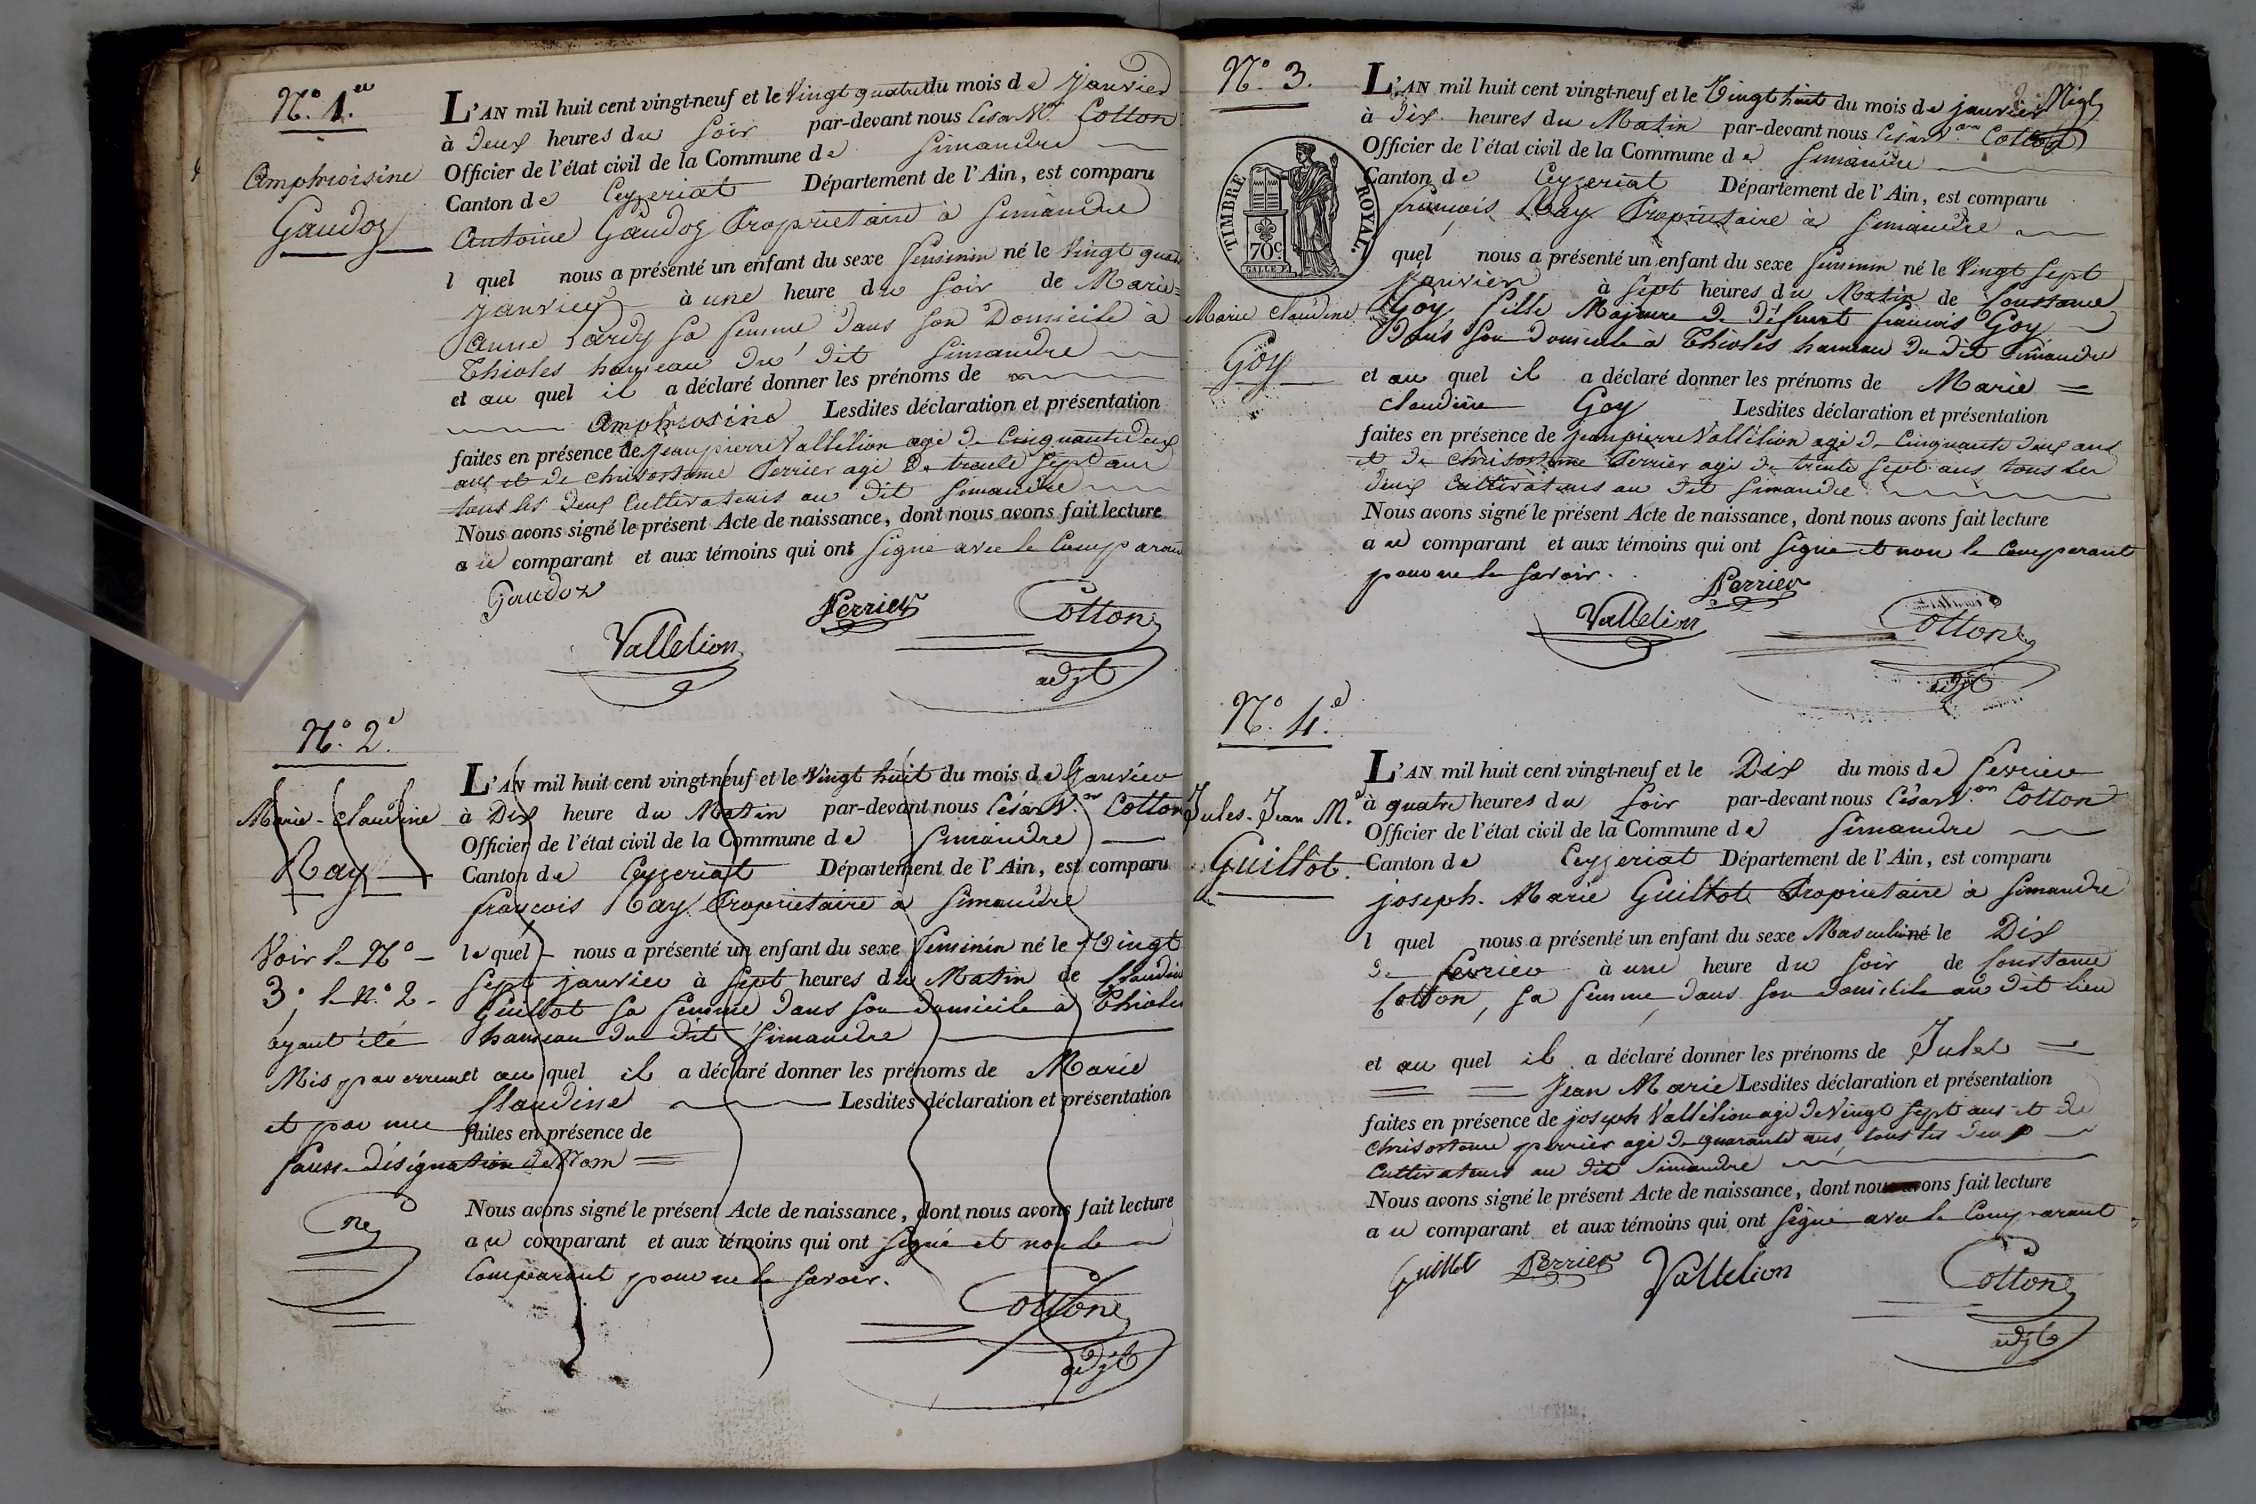 N.° 1.er
Amphroisine
Gaudoz
L'AN mil huit cent vingt-neuf et le Vingt quatre du mois de janvier
à Deux heures du Soir par-devant nous César Cotton
Officier de l'état civil de la Commune de Simandre
Canton de Ceyzeriat Département de l'Ain, est comparu
Antoine Gaudoz Propriétaire à Simandre
l quel nous a présenté un enfant du sexe feminin né le Vingt quatre
janvier à une heure du Soir de Marie=
Anne Pardy Sa femme dans Son Domicile à
Thioles hameau du dit Simandre
et au quel il a déclaré donner les prénoms de
Amphrosine Lesdites déclaration et présentation
faites en présence de jeanpierre Vallélion agé de Cinquante deux
ans et de Chrisostome Perrier agé de trente Sept ans
tous les deux Cultivateurs au dit Simandre
Nous avons signé le présent Acte de naissance, dont nous avons fait lecture
au comparant et aux témoins qui ont Signé avec le Comparant
Gaudoz
Perrier
Cotton
Vallelion
adjt
N.° 2.e
Marie-Claudine
Ray
Voir le N.°
3; le n.° 2
ayant été
Mis par erreur
et par une
fausse désignation de Nom
L'AN mil huit cent vingt-neuf et le Vingt huit du mois de Janvier
à Dix heure du Matin par-devant nous César V.or Cotton
Officier de l'état civil de la Commune de Simandre
Canton de Ceyzeriat Département de l'Ain, est comparu
françois Ray Propriétaire à Simandre
le quel nous a présenté un enfant du sexe Feminin né le Vingt
Sept janvier à Sept heures du Matin de Claudine
Guillot Sa femme dans Son domicile à Thioles
hameau du dit Simandre
et au quel il a déclaré donner les prénoms de Marie
Claudine Lesdites déclaration et présentation
faites en présence de
Nous avons signé le présent Acte de naissance, dont nous avons fait lecture
au comparant et aux témoins qui ont Signé et non le
Comparant pour ne le Savoir.
Cotton
adjt
N.° 3.
TIMBRE ROYAL.
70c.
Marie Claudine
Goy
L'AN mil huit cent vingt-neuf et le Vingt huit du mois de janvier
à Dix heures du Matin par-devant nous César V.or Cotton
Officier de l'état civil de la Commune de Simandre
Canton de Ceyzeriat Département de l'Ain, est comparu
françois Ray Propriétaire à Simandre
quel nous a présenté un enfant du sexe feminin né le Vingt Sept
Janvier à Sept heures du Matin de Constance
Goy, fille Majeure de défunt françois Goy
Dans Son Domicile à Thioles hameau du dit Simandre
et au quel il a déclaré donner les prénoms de Marie =
Claudine Goy Lesdites déclaration et présentation
faites en présence de jeanpierre Vallélion agé de Cinquante deux ans
et de Chrisostome Perrier agé de trente Sept ans tous les
deux Cultivateurs au dit Simandre
Nous avons signé le présent Acte de naissance, dont nous avons fait lecture
au comparant et aux témoins qui ont Signé et non le Comparant
pour ne le Savoir.
Perrier
Vallelion
Cotton
adjt
N.° 4.e
Jules-Jean M.e
Guillot.
L'AN mil huit cent vingt-neuf et le Dix du mois de fevrier
à quatre heures du Soir par-devant nous César V.or Cotton
Officier de l'état civil de la Commune de Simandre
Canton de Ceyzeriat Département de l'Ain, est comparu
joseph-Marie Guillot Propriétaire à Simandre
l quel nous a présenté un enfant du sexe Masculin né le Dix
de fevrier à une heure du Soir de Constance
Cotton, Sa femme, dans Son domicile au dit lieu
et au quel il a déclaré donner les prénoms de Jules =
Jean Marie Lesdites déclaration et présentation
faites en présence de joseph Vallélion agé de Vingt Sept ans et de
Chrisostome perrier agé de quarante ans, tous les deux
Cultivateurs au dit Simandre
Nous avons signé le présent Acte de naissance, dont nous avons fait lecture
au comparant et aux témoins qui ont Signé avec le Comparant
Guillot Perrier Vallelion Cotton
adjt